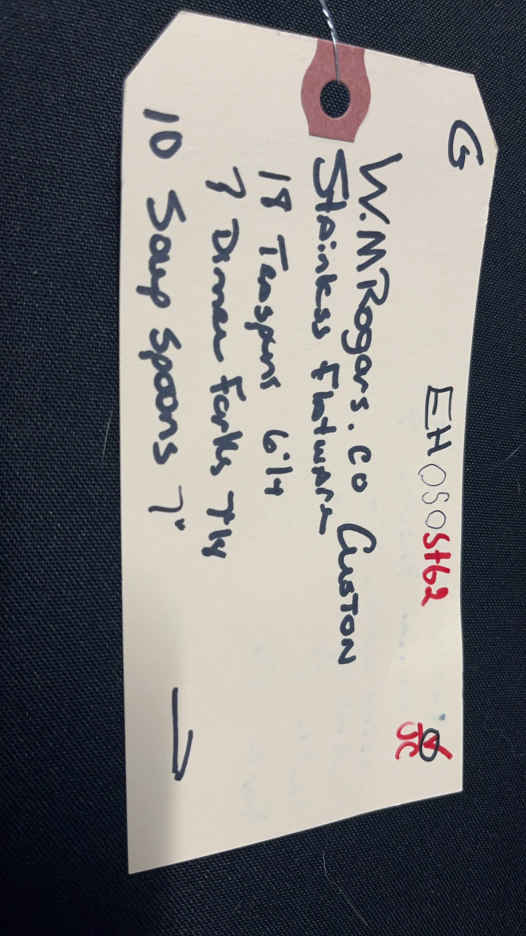 G EH050St62 8
JC
W.M Rogers. CO Custon
Stainless Flatware
18 Teaspons 6 1/4
7 Dinner Forks 7 1/4
10 Soup Spoons 7"